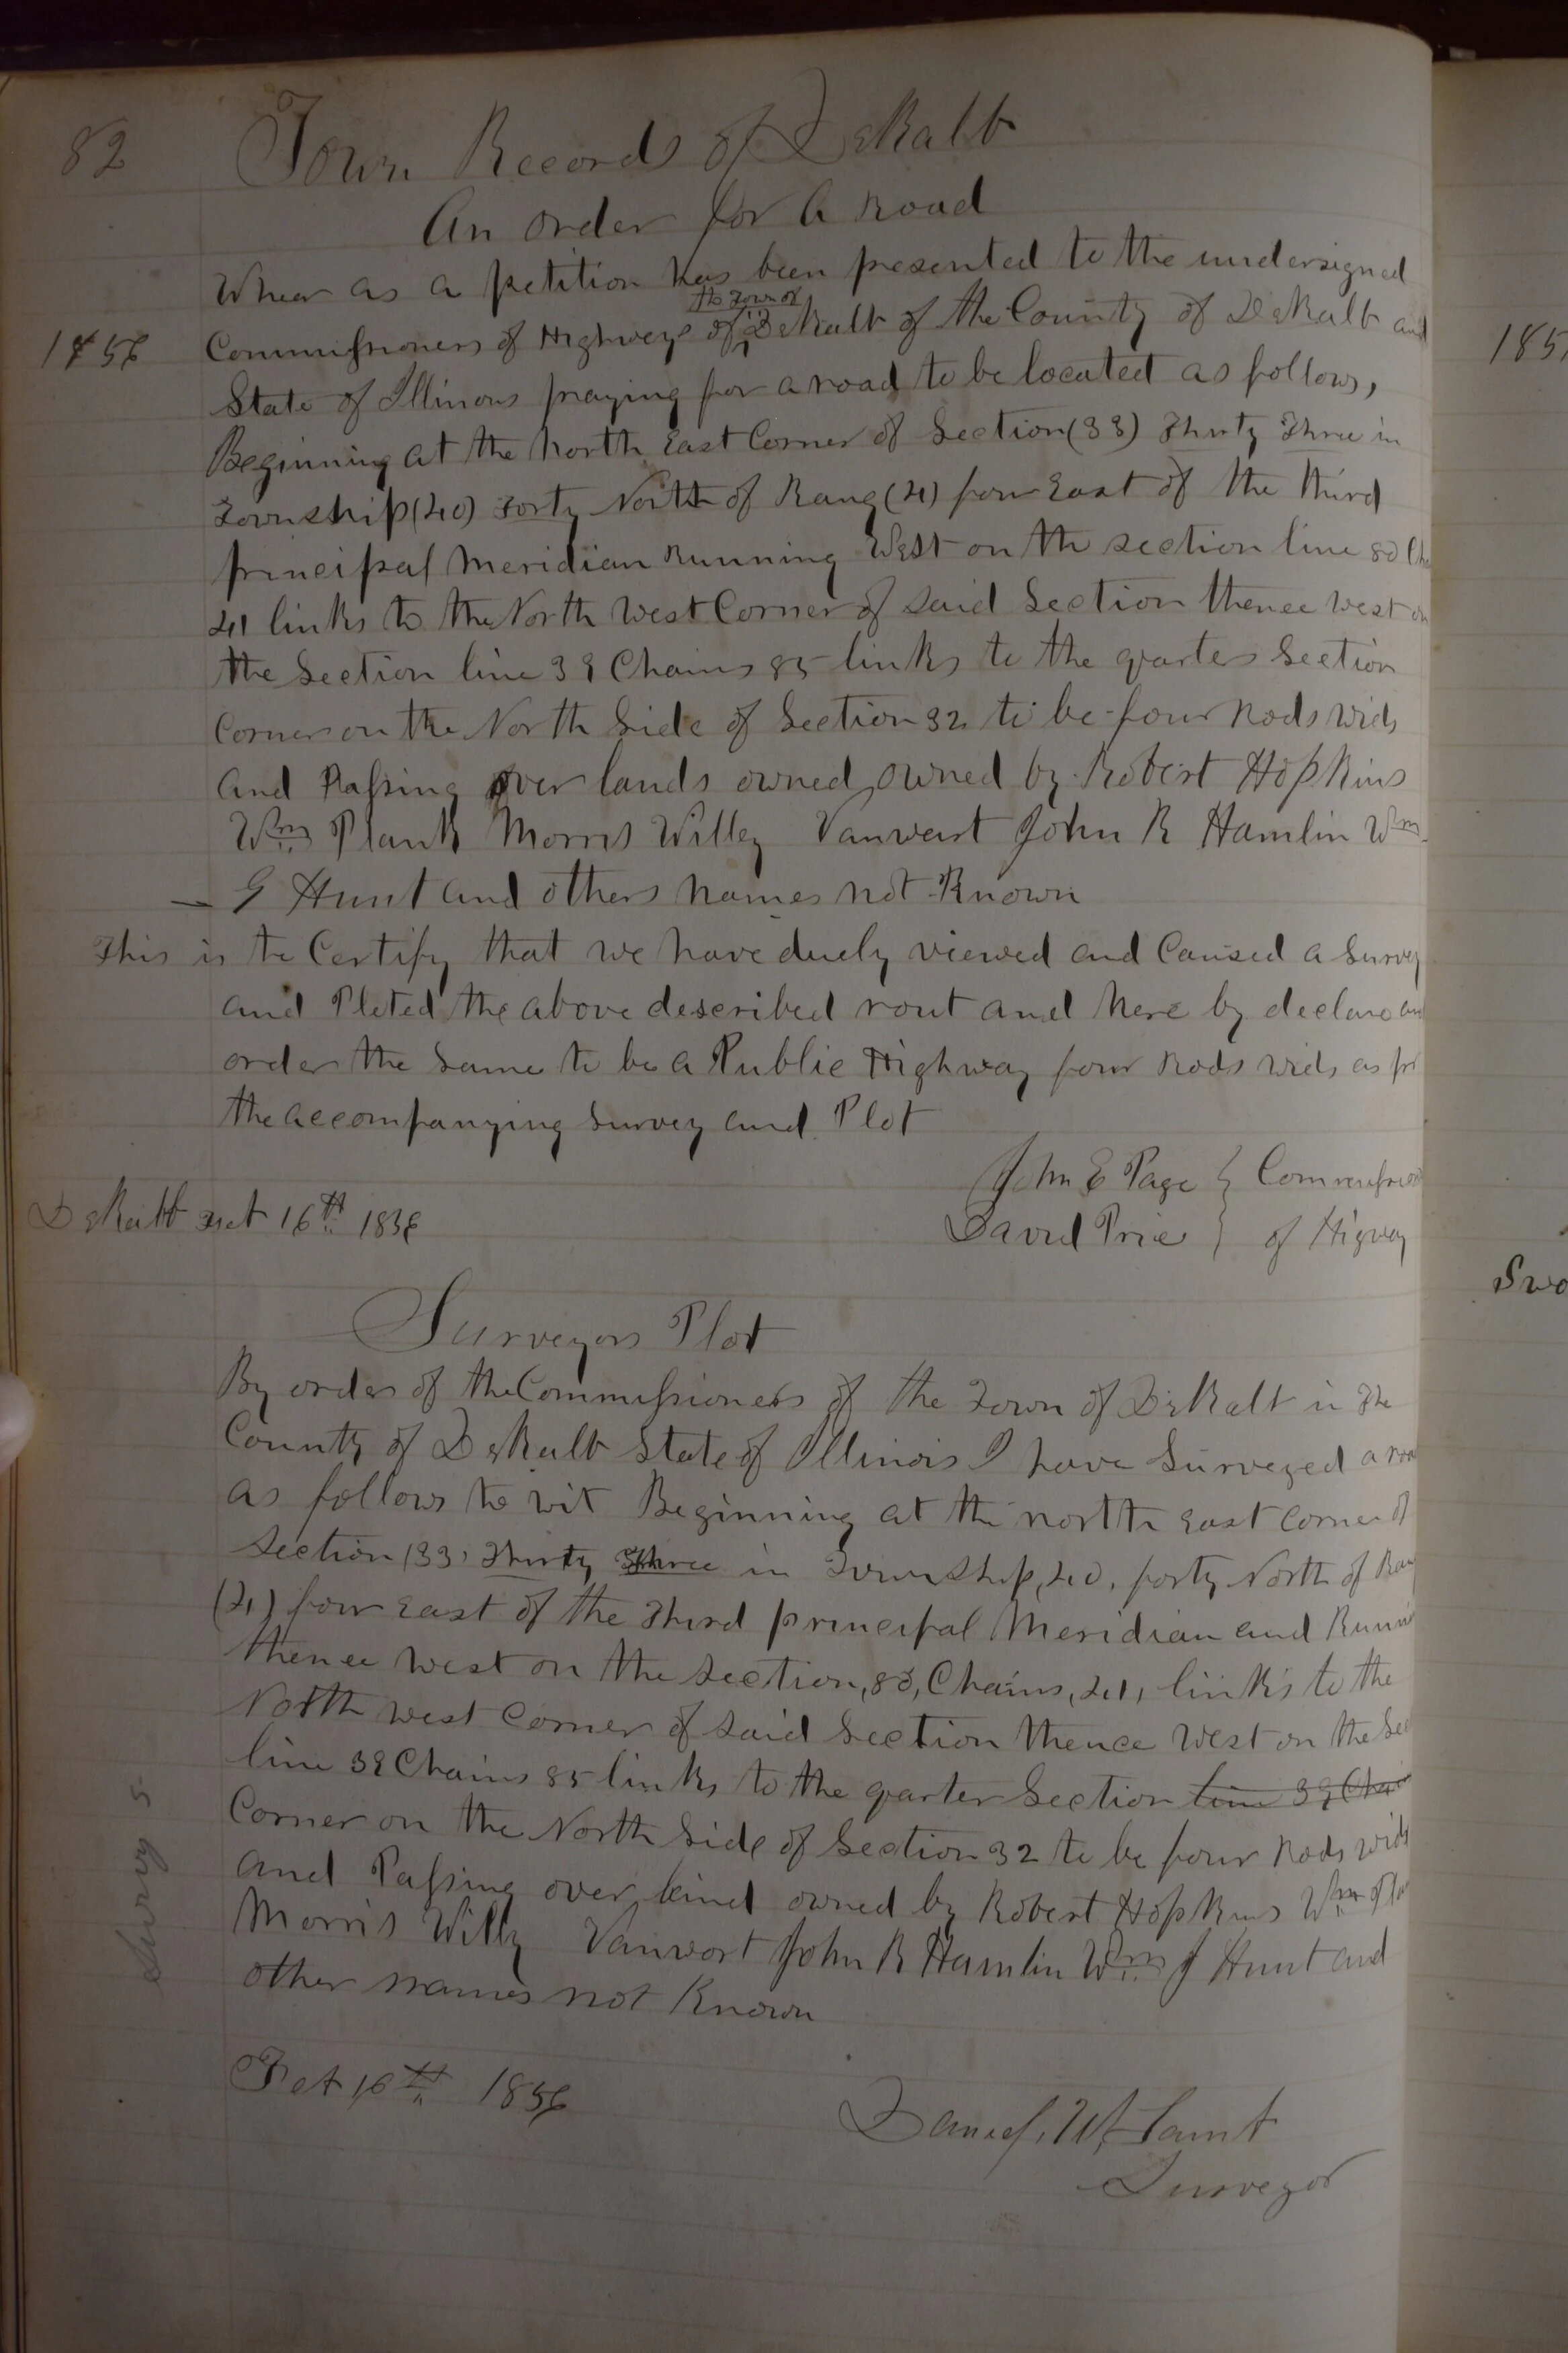 82 Town Records of DeKalb
An order for a Road
Whear as a petition has been presented to the undersigned
the Town of
1856 Commissioners of Highways of DeKalb of the County of DeKalb and
State of Illinois praying for a road to be located as follows,
Beginning at the North East Corner of Section (33) Thirty Three in
Township (40) Forty North of Rang (4) four East of the third
principal Meridian Running West on the section line 80
41 links to the North West Corner of said Section thence west on
the Section line 39 Chains 85 links to the quarter Section
Corner on the North Side of Section 32 to be four Rods wide
and Passing over lands owned owned by Robert Hopkins
Wm Plank Morris Willey John R Hamlin Wm
G Hunt and others names not Known
This is to Certify that we have duely viewed and Caused a Survey
and Ploted the above described rout and here by declare and
order the Same to be a Public Highway four Rods wide as
the accompanying Survey and Plot
John E Page } Commission
DeKalb 16th 1856 David Price } of Higway
Surveyors Plot
By order of the Commissioners of the Town of DeKalb in the
County of DeKalb State of Illinois I have Surveyed a roa
as follows to wit Beginning at the north East corner of
Section (33) Thirty Three in Township, 40, forty North of Ran
(4) four East of the Third principal Meridian and Runni
thence West on the Section, 80, Chains, 41, links to the
North west Corner of said Section thence West on the Sec
line 39 Chains 85 links to the quarter Section line 39 Chai
Corner on the North Side of Section 32 to be four Rods wide
and Passing over land owned by Robert Hopkins Wm Pla
Morris Willy Vanwort John R Hamlin Wm J Hunt and
other names not Known
16th 1856
Daniel W Lamt
Surveyor
Survy 5
185
Swo